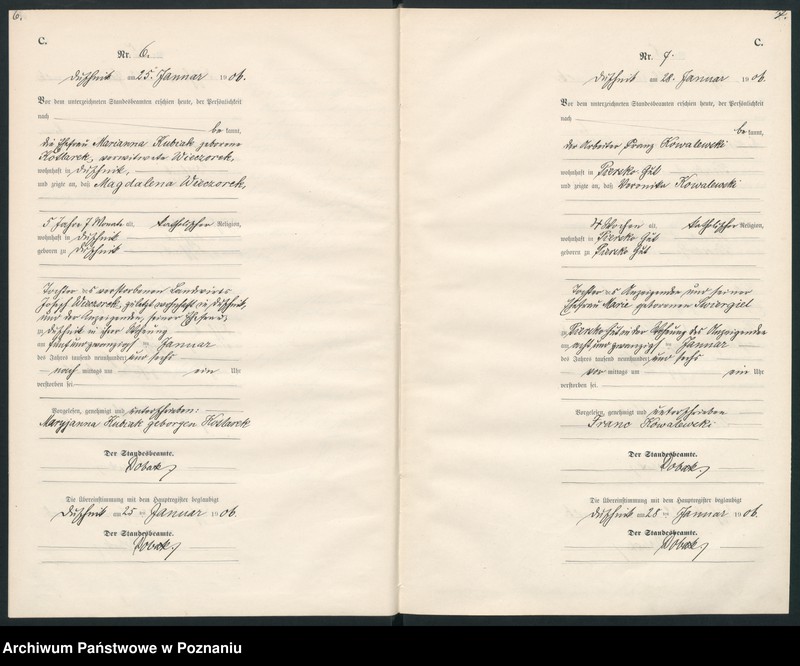 6.
C.
Nr. 6.
Duschnik am 25. Januar 1906.
Vor dem unterzeichneten Standesbeamten erschien heute, der Persönlichkeit
nach
bekannt,
die Ehefrau Marianna Kubiak geborene
Koslarek, verwitwete Wieczorek,
wohnhaft in Duschnik,
und zeigte an, daß Magdalena Wieczorek,
5 Jahre 7 Monate alt, katholischer Religion,
wohnhaft in Duschnik
geboren zu Duschnik
Tochter des verstorbenen Landwirts
Josef Wieczorek, zuletzt wohnhaft in Duschnik,
und der Anzeigenden, seiner Ehefrau
zu Duschnik in ihrer Wohnung
am fünfundzwanzigsten Januar
des Jahres tausend neunhundert und sechs
nach mittags um ein Uhr
verstorben sei.
Vorgelesen, genehmigt und unterschrieben:
Maryjanna Kubiak geborgen Koslarek
Der Standesbeamte.
Dobak
Die Übereinstimmung mit dem Hauptregister beglaubigt
Duschnik am 25. ten Januar 1906.
Der Standesbeamte.
Dobak
7.
C.
Nr. 7.
Duschnik am 28. Januar 1906.
Vor dem unterzeichneten Standesbeamten erschien heute, der Persönlichkeit
nach
bekannt,
der Arbeiter Franz Kowalewski
wohnhaft in Piersko Gut
und zeigte an, daß Veronika Kowalewski
4 Wochen alt, katholischer Religion,
wohnhaft in Piersko Gut
geboren zu Piersko Gut
Tochter des Anzeigenden und seiner
Ehefrau Marie geborenen Swiergiel
zu Piersko Gut in der Wohnung des Anzeigenden
am achtundzwanzigsten Januar
des Jahres tausend neunhundert und sechs
vor mittags um ein Uhr
verstorben sei.
Vorgelesen, genehmigt und unterschrieben
Franc Kowalewski
Der Standesbeamte.
Dobak
Die Übereinstimmung mit dem Hauptregister beglaubigt
Duschnik am 28 ten Januar 1906.
Der Standesbeamte.
Dobak
Archiwum Państwowe w Poznaniu